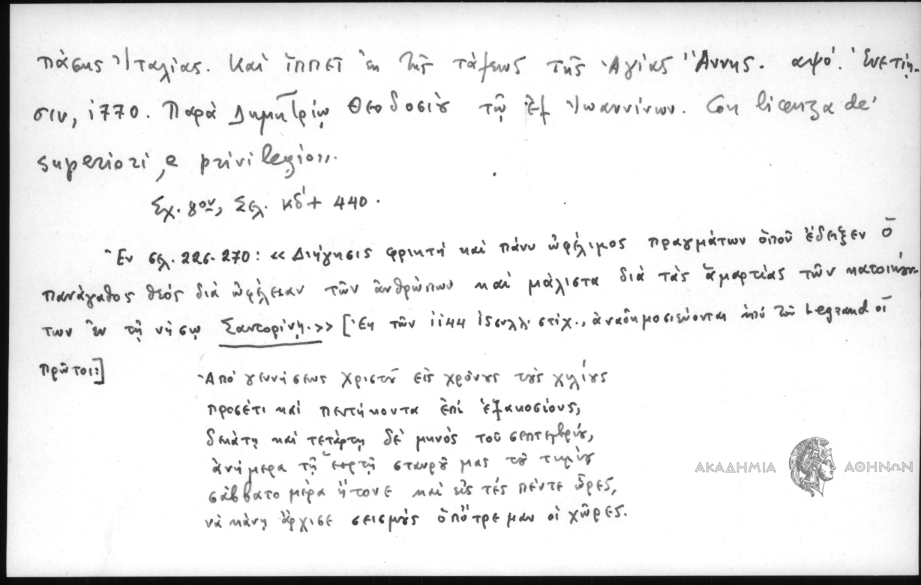 πάσης Ἰταλίας. Καὶ ἱππεῖ ἐκ τῆς τάξεως τῆς Ἁγίας Ἄννης. αψό. Ἐνετίη-
σιν, 1770. Παρὰ Δημητρίῳ Θεοδοσίου τῷ ἐξ Ἰωαννίνων. Con licenza de'
superiori, e privilegio».
Σχ. 8ον, Σελ. κδ' + 440.
Ἐν σελ. 226-270: «Διήγησις φρικτὴ καὶ πάνυ ὠφέλιμος πραγμάτων ὁποῦ ἔδειξεν ὁ
πανάγαθος θεὸς διὰ ὠφέλειαν τῶν ἀνθρώπων καὶ μάλιστα διὰ τὰς ἁμαρτίας τῶν κατοικούν-
των ἐν τῇ νήσῳ Σαντορίνῃ.>> [Ἐκ τῶν 1144 15συλλ. στίχ., ἀναδημοσιεύονται ἀπὸ τοῦ Legrand οἱ
πρῶτοι:]
Ἀπὸ γεννήσεως Χριστοῦ εἰς χρόνους τοὺς χιλίους
προσέτι καὶ πεντήκοντα ἐπὶ ἑξακοσίους,
δεκάτῃ καὶ τετάρτῃ δὲ μηνὸς τοῦ σεπτεμβρίου,
ἀνήμερα τῇ ἑορτῇ σταυροῦ μας τοῦ τιμίου
σάββατο μέρα ἤτονε καὶ εἰς τὲς πέντε ὧρες,
νὰ κάνῃ ἄρχισε σεισμοὺς ὁπὄτρεμαν οἱ χῶρες.
ΑΚΑΔΗΜΙΑ ΑΘΗΝΩΝ